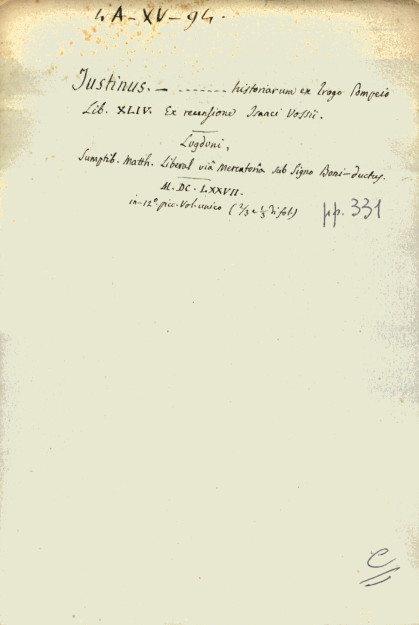 4 A-XV-94.
Justinus. — ........ historiarum ex Trogo Pompeio
Lib. XLIV. Ex recensione Isaaci Vossii.
Lugduni,
Sumptib. Matth. Liberal viâ Mercatoriâ sub Signo Boni-ductus.
M. DC. LXXVII.
in-12º. picc. Vol. unico (2/3 e 1/3 di fol.)
pp. 331